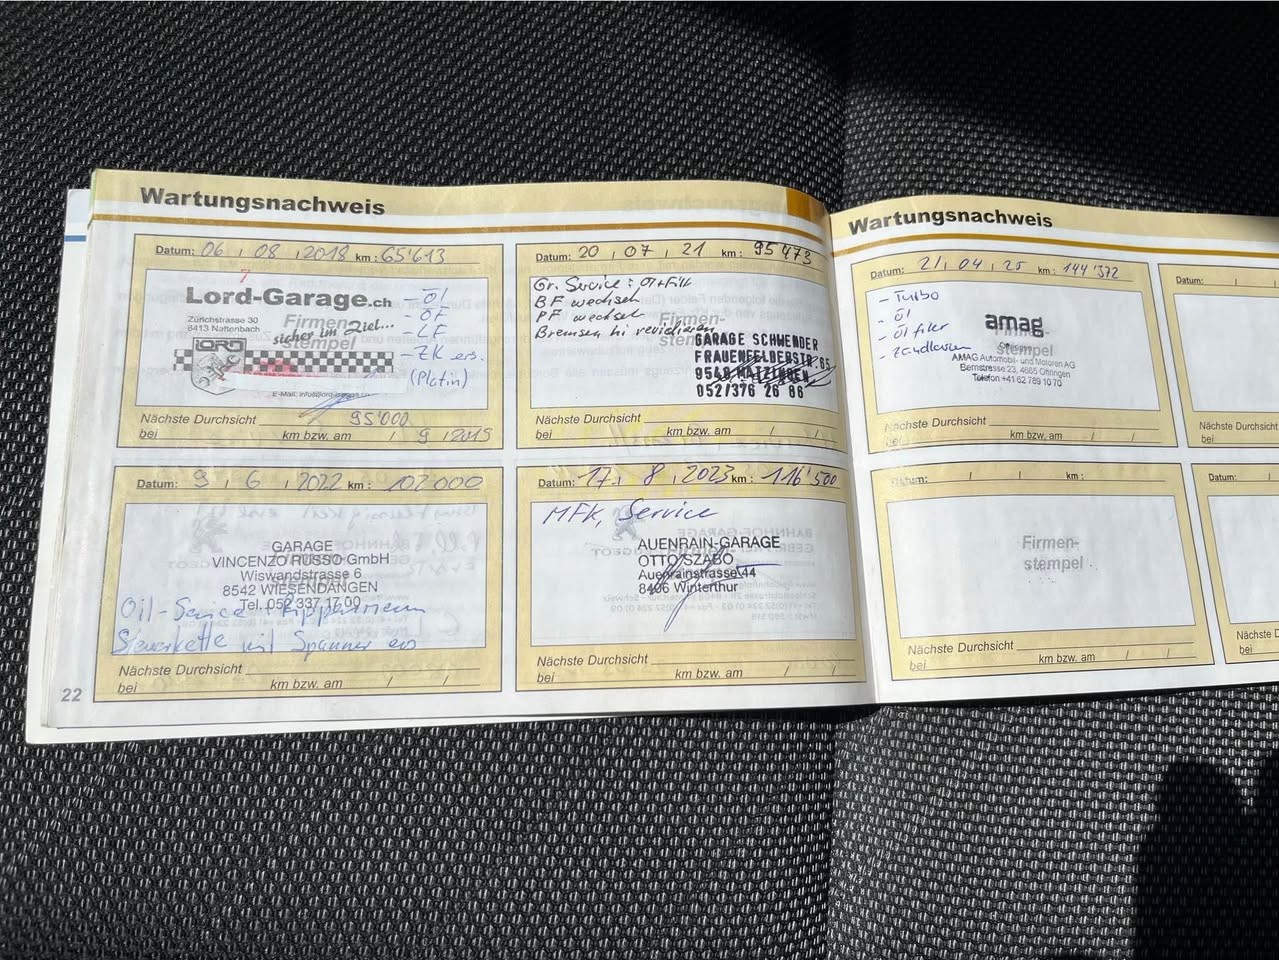 Wartungsnachweis
Datum: 06 , 08 , 2018 km : 65'613
Lord-Garage.ch
Zürichstrasse 30
8413 Neftenbach
sicher im Ziel...
Firmen-
stempel
LORD
- Öl
- ÖF
- LF
- ZK ers.
(Platin)
Nächste Durchsicht 95'000
bei km bzw. am / 9 / 2019
Datum: 20 , 07 , 21 km : 95'473
Gr. Service : Öl+Filt
BF wechseln
PF wechseln
Bremsen hi revidieren
Firmen-
stempel
GARAGE SCHWENDER
FRAUENFELDERSTR. 65
9548 MATZINGEN
052/376 26 86
Nächste Durchsicht
bei km bzw. am / /
Datum: 9 , 6 , 2022 km : 102'000
GARAGE
VINCENZO RUSSO GmbH
Wiswandstrasse 6
8542 WIESENDANGEN
Tel. 052 337 17 00
Oil-Service
Steuerkette mit Spanner ers
Nächste Durchsicht
bei km bzw. am / /
Datum: 17 , 8 , 2023 km : 116'500
MFK, Service
AUENRAIN-GARAGE
OTTO SZABO
Auenrainstrasse 44
8406 Winterthur
Nächste Durchsicht
bei km bzw. am / /
22
Wartungsnachweis
Datum: 21 , 04 , 25 km : 144'372
- Turbo
- Öl
- Ölfilter
amag
stempel
AMAG Automobil- und Motoren AG
Bernstrasse 23, 4665 Oftringen
Telefon +41 62 789 10 70
Nächste Durchsicht
bei km bzw. am / /
Datum: / / km :
Firmen-
stempel
Nächste Durchsicht
bei km bzw. am / /
Datum:
Nächste Du
bei
Datum:
Nächste D
bei